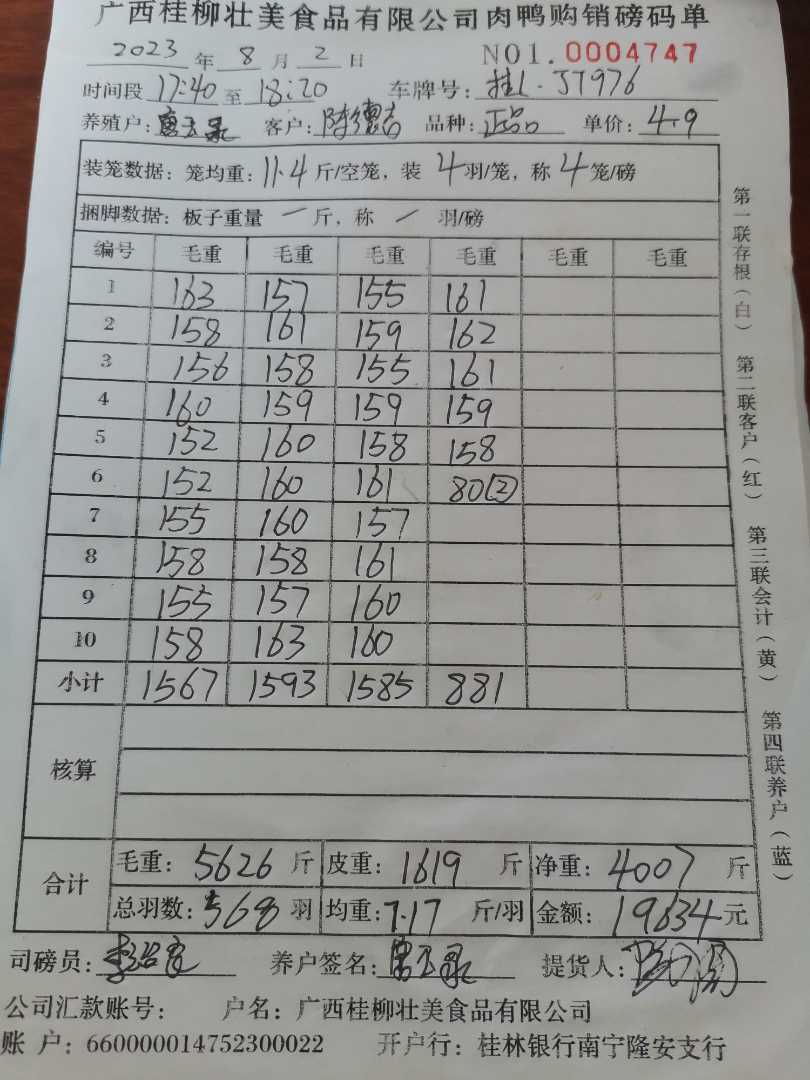 广西桂柳壮美食品有限公司肉鸭购销磅码单
2023 年 8 月 2 日 NO1.0004747
时间段 17:40 至 18:20 车牌号: 桂L·JT976
养殖户: 客户: 陈德吉 品种: 正品 单价: 4.9
装笼数据: 笼均重: 11.4 斤/空笼, 装 4 羽/笼, 称 4 笼/磅
捆脚数据: 板子重量 一 斤, 称 / 羽/磅
编号 毛重 毛重 毛重 毛重 毛重 毛重
1 163 157 155 161
2 158 161 159 162
3 156 158 155 161
4 160 159 159 159
5 152 160 158 158
6 152 160 161 80②
7 155 160 157
8 158 158 161
9 155 157 160
10 158 163 160
小计 1567 1593 1585 881
核算
合计
毛重: 5626 斤 皮重: 1619 斤 净重: 4007 斤
总羽数: 568 羽 均重: 7.17 斤/羽 金额: 19634 元
司磅员: 养户签名: 提货人:
公司汇款账号: 户名: 广西桂柳壮美食品有限公司
账 户: 660000014752300022 开户行: 桂林银行南宁隆安支行
第一联存根(白) 第二联客户(红) 第三联会计(黄) 第四联养户(蓝)